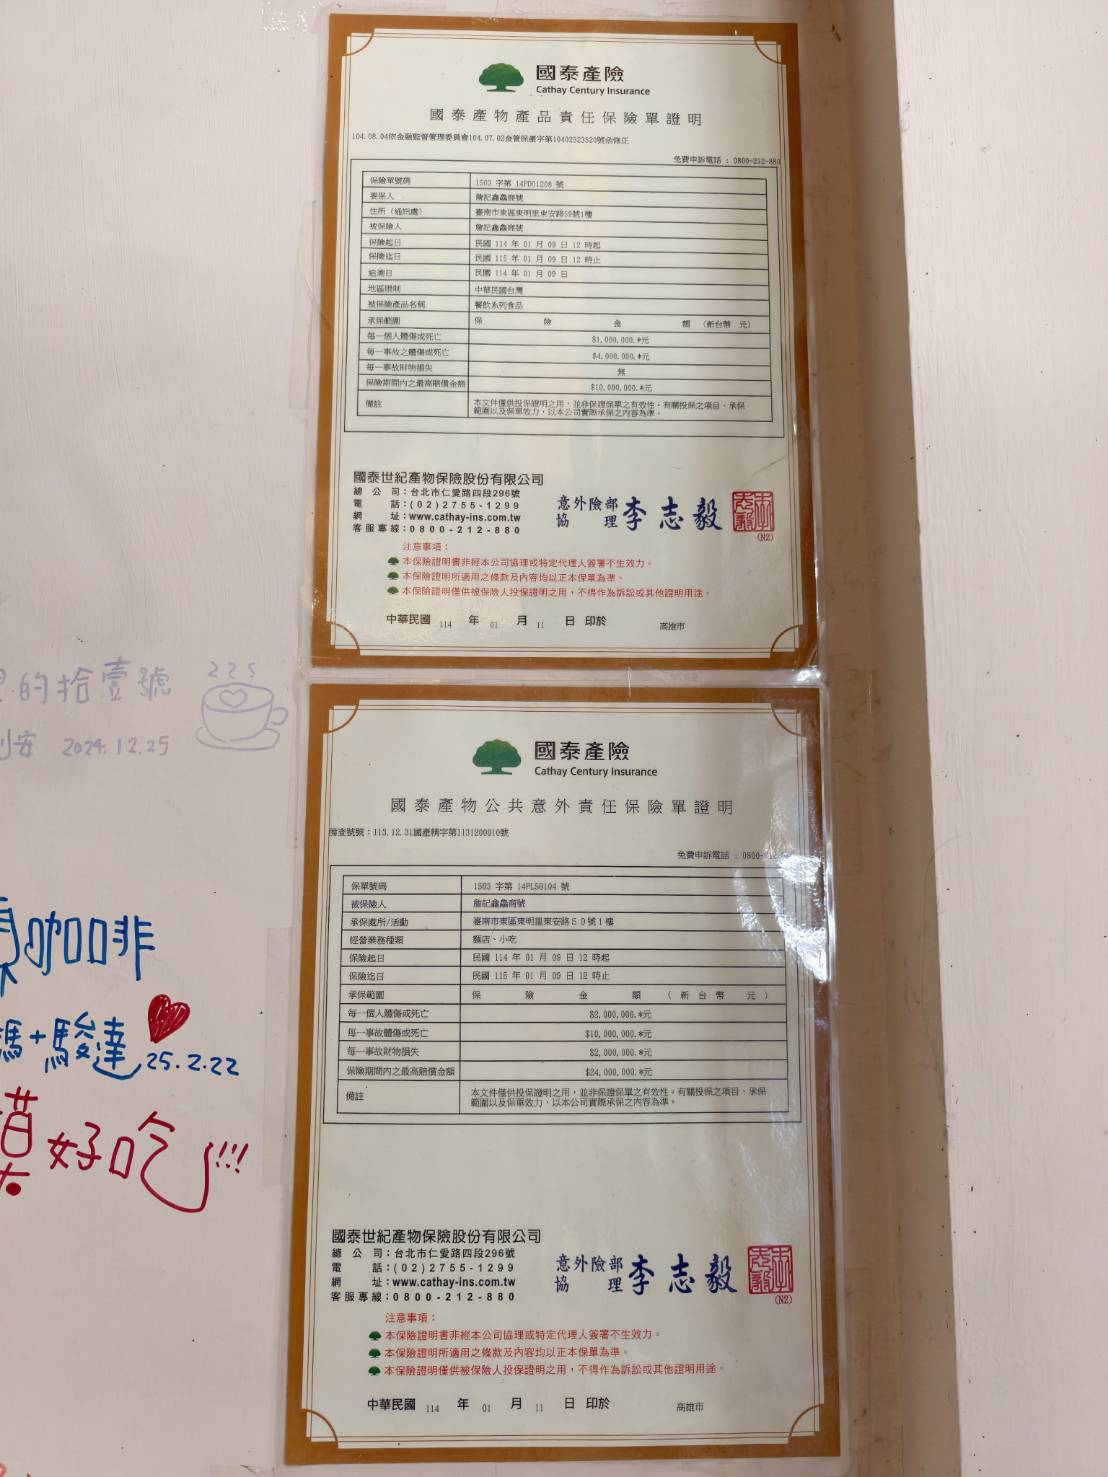 國泰產險
Cathay Century Insurance
國泰產物產品責任保險單證明
104.08.04依金融監督管理委員會104.07.02金管保產字第10402523520號函修正
免費申訴電話：0800-212-880
保險單號碼 1503 字第 14PD01208 號
要保人 詹記鑫鱻商號
住所（通訊處） 臺南市東區東明里東安路59號1樓
被保險人 詹記鑫鱻商號
保險起日 民國 114 年 01 月 09 日 12 時起
保險迄日 民國 115 年 01 月 09 日 12 時止
追溯日 民國 114 年 01 月 09 日
地區限制 中華民國台灣
被保險產品名稱 餐飲系列食品
承保範圍 保 險 金 額 （新台幣 元）
每一個人體傷或死亡 $1,000,000.*元
每一事故之體傷或死亡 $4,000,000.*元
每一事故財物損失 無
保險期間內之最高賠償金額 $10,000,000.*元
備註 本文件僅供投保證明之用，並非保證保單之有效性，有關投保之項目、承保
範圍以及保單效力，以本公司實際承保之內容為準。
國泰世紀產物保險股份有限公司
總公司：台北市仁愛路四段296號
電話：(02)2755-1299
網址：www.cathay-ins.com.tw
客服專線：0800-212-880
意外險部
協理 李志毅
(N2)
注意事項：
本保險證明書非經本公司協理或特定代理人簽署不生效力。
本保險證明所適用之條款及內容均以正本保單為準。
本保險證明僅供被保險人投保證明之用，不得作為訴訟或其他證明用途。
中華民國 114 年 01 月 11 日 印於 高雄市
的拾壹號
225
安 2024.12.25
咖啡
媽+駿達 25.2.22
好吃!!!
國泰產險
Cathay Century Insurance
國泰產物公共意外責任保險單證明
備查號號：113.12.31國產精字第1131200010號
免費申訴電話：0800-
保單號碼 1503 字第 14PL50104 號
被保險人 詹記鑫鱻商號
承保處所/活動 臺南市東區東明里東安路５９號１樓
經營業務種類 麵店、小吃
保險起日 民國 114 年 01 月 09 日 12 時起
保險迄日 民國 115 年 01 月 09 日 12 時止
承保範圍 保 險 金 額 （新台幣 元）
每一個人體傷或死亡 $2,000,000.*元
每一事故體傷或死亡 $10,000,000.*元
每一事故財物損失 $2,000,000.*元
保險期間內之最高賠償金額 $24,000,000.*元
備註 本文件僅供投保證明之用，並非保證保單之有效性。有關投保之項目、承保
範圍以及保單效力，以本公司實際承保之內容為準。
國泰世紀產物保險股份有限公司
總公司：台北市仁愛路四段296號
電話：(02)2755-1299
網址：www.cathay-ins.com.tw
客服專線：0800-212-880
意外險部
協理 李志毅
(N2)
注意事項：
本保險證明書非經本公司協理或特定代理人簽署不生效力。
本保險證明所適用之條款及內容均以正本保單為準。
本保險證明僅供被保險人投保證明之用，不得作為訴訟或其他證明用途。
中華民國 114 年 01 月 11 日 印於 高雄市